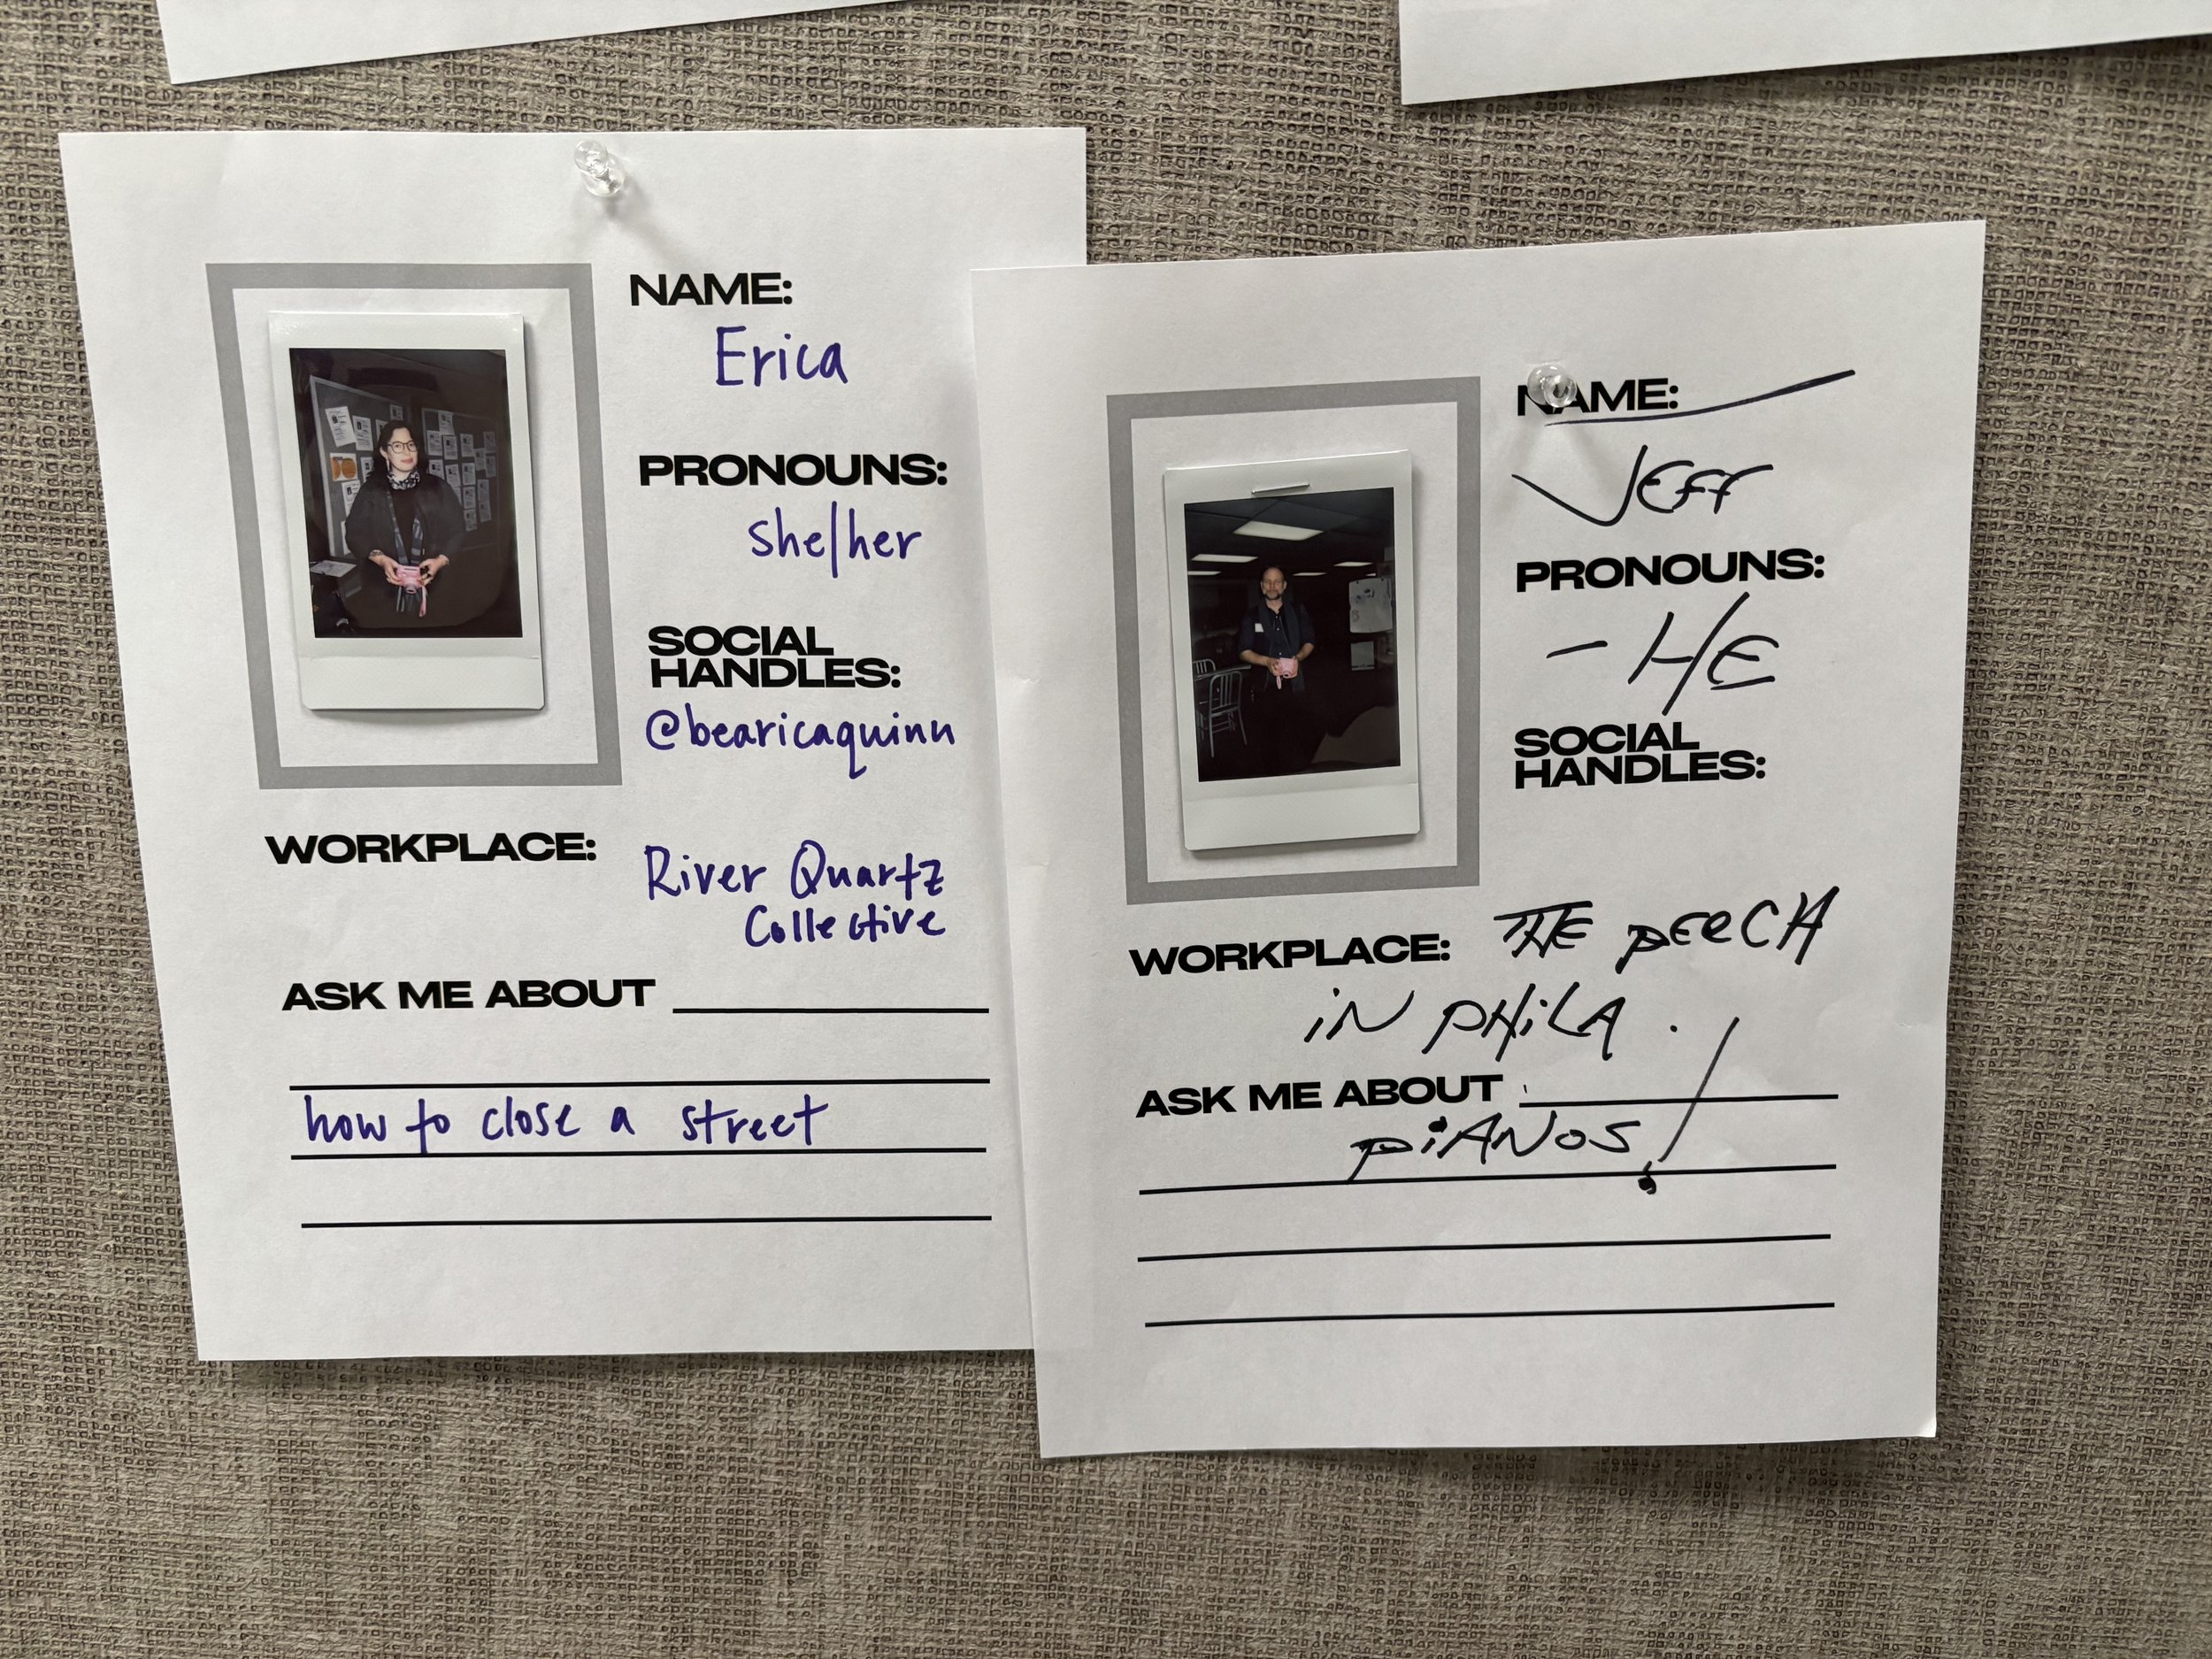 NAME:
Erica
PRONOUNS:
she/her
SOCIAL
HANDLES:
@bearicaquinn
WORKPLACE:
River Quartz
Collective
ASK ME ABOUT
how to close a street
NAME:
JEFF
PRONOUNS:
- HE
SOCIAL
HANDLES:
WORKPLACE: THE PERCH
IN PHILA.
ASK ME ABOUT
PIANOS!